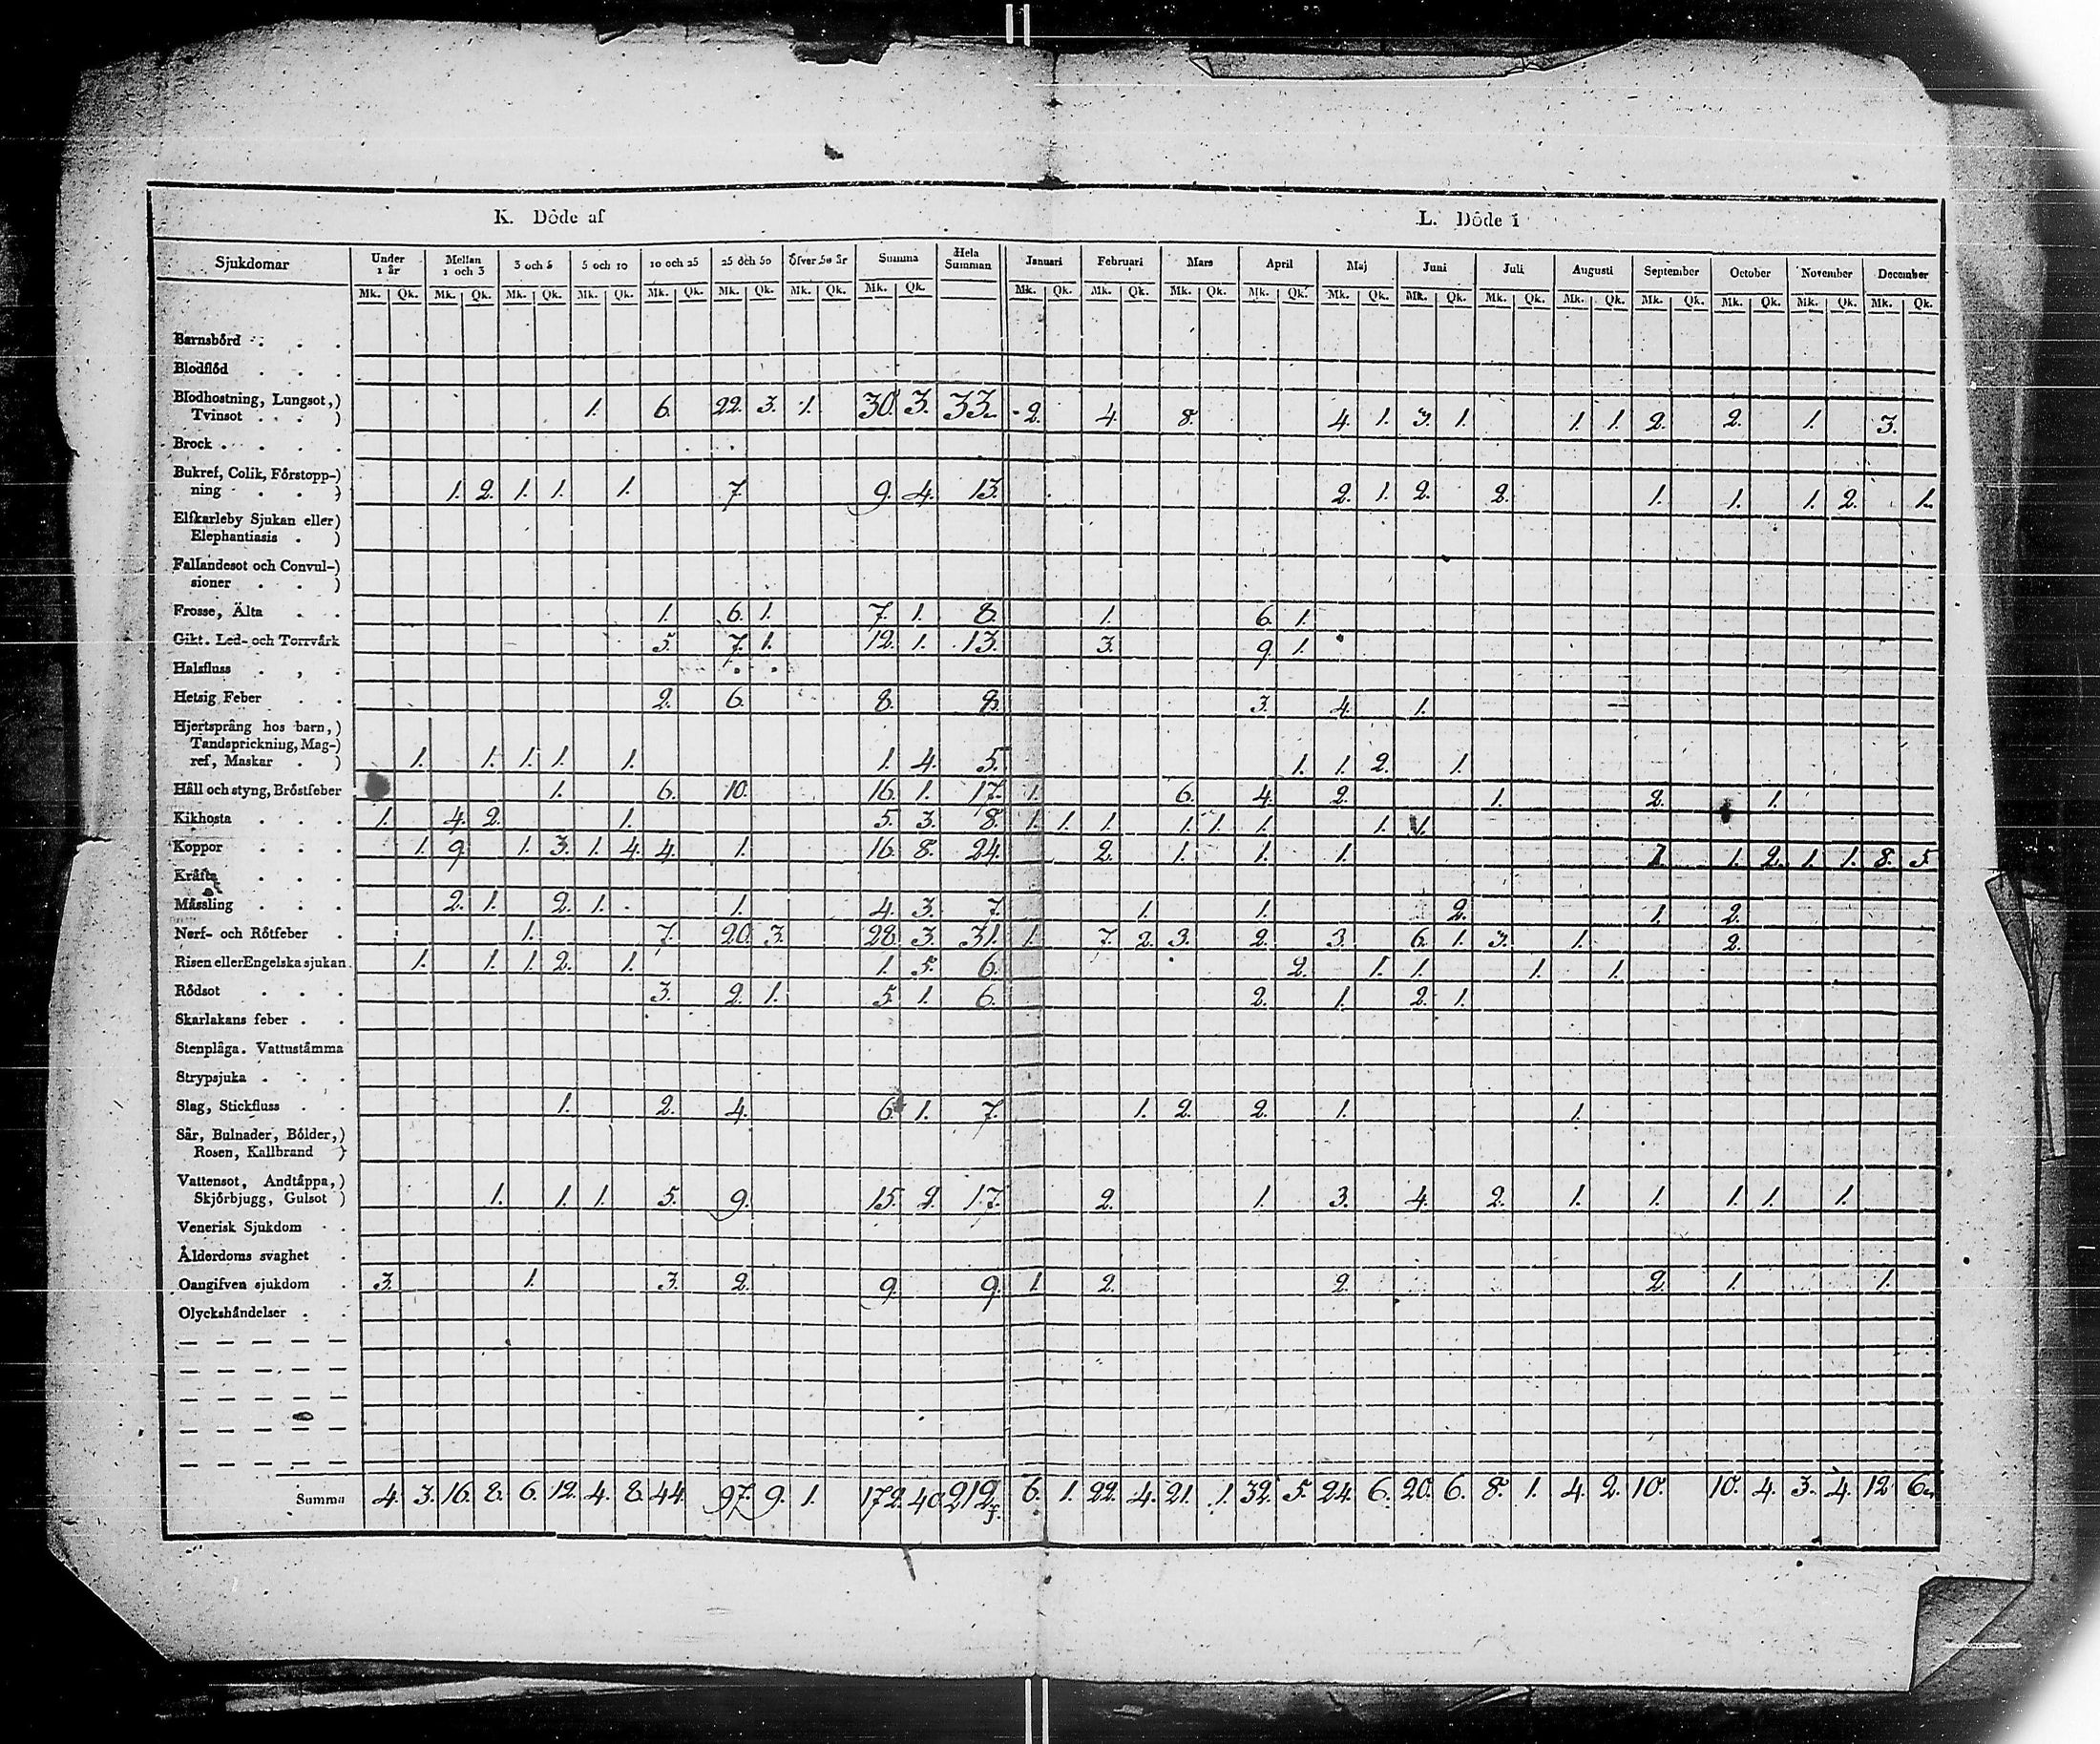 K. Dôde af L. Dôde i
Sjukdomar Under 1 år Mellan 1 och 3 3 och 5 5 och 10 10 och 25 25 och 50 öfver 50 år Summa Hela Summan Januari Februari Mars April Maj Juni Juli Augusti September October November December
Mk. Qk. Mk. Qk. Mk. Qk. Mk. Qk. Mk. Qk. Mk. Qk. Mk. Qk. Mk. Qk. Mk. Qk. Mk. Qk. Mk. Qk. Mk. Qk. Mk. Qk. Mk. Qk. Mk. Qk. Mk. Qk. Mk. Qk. Mk. Qk. Mk. Qk. Mk. Qk.
Barnsbörd . . .
Blodflöd . . .
Blodhostning, Lungsot,)
Tvinsot . . . ) 1. 6. 22. 3. 1. 30. 3. 33. 2. 4. 8. 4. 1. 3. 1. 1. 1. 2. 2. 1. 3.
Brock . . . .
Bukref, Colik, Förstopp-)
ning . . . ) 1. 2. 1. 1. 1. 7. 9. 4. 13. 2. 1. 2. 2. 1. 1. 1. 2. 1.
Elfkarleby Sjukan eller)
Elephantiasis . )
Fallandesot och Convul-)
sioner . . )
Frosse, Älta . . 1. 6. 1. 7. 1. 8. 1. 6. 1.
Gikt. Led- och Torrvärk 5. 7. 1. 12. 1. 13. 3. 9. 1.
Halsfluss . , .
Hetsig Feber . . 2. 6. 8. 8. 3. 4. 1.
Hjertsprång hos barn,)
Tandsprickning, Mag-)
ref, Maskar . ) 1. 1. 1. 1. 1. 1. 4. 5. 1. 1. 2. 1.
Håll och styng, Bröstfeber 1. 6. 10. 16. 1. 17. 1. 6. 4. 2. 1. 2. 1.
Kikhosta . . . 1. 4. 2. 1. 5. 3. 8. 1. 1. 1. 1. 1. 1. 1. 1.
Koppor . . . 1. 9. 1. 3. 1. 4. 4. 1. 16. 8. 24. 2. 1. 1. 1. 1. 1. 2. 1. 1. 8. 5.
Kräfta . . .
Mässling . . . 2. 1. 2. 1. 1. 4. 3. 7. 1. 1. 2. 1. 2.
Nerf- och Rötfeber . 1. 7. 20. 3. 28. 3. 31. 1. 7. 2. 3. 2. 3. 6. 1. 3. 1. 2.
Risen eller Engelska sjukan 1. 1. 1. 2. 1. 1. 5. 6. 2. 1. 1. 1. 1.
Rödsot . . . 3. 2. 1. 5. 1. 6. 2. 1. 2. 1.
Skarlakans feber . .
Stenplåga. Vattustämma
Strypsjuka . . .
Slag, Stickfluss . . 1. 2. 4. 6. 1. 7. 1. 2. 2. 1. 1.
Sår, Bulnader, Bölder,)
Rosen, Kallbrand )
Vattensot, Andtäppa,)
Skjörbjugg, Gulsot ) 1. 1. 1. 5. 9. 15. 2. 17. 2. 1. 3. 4. 2. 1. 1. 1. 1. 1.
Venerisk Sjukdom . .
Ålderdoms svaghet .
Oangifven sjukdom . 3. 1. 3. 2. 9. 9. 1. 2. 2. 2. 1. 1.
Olyckshändelser . .
Summa 4. 3. 16. 8. 6. 12. 4. 8. 44. 97. 9. 1. 172. 40. 212. 6. 1. 22. 4. 21. 1. 32. 5. 24. 6. 20. 6. 8. 1. 4. 2. 10. 10. 4. 3. 4. 12. 6.